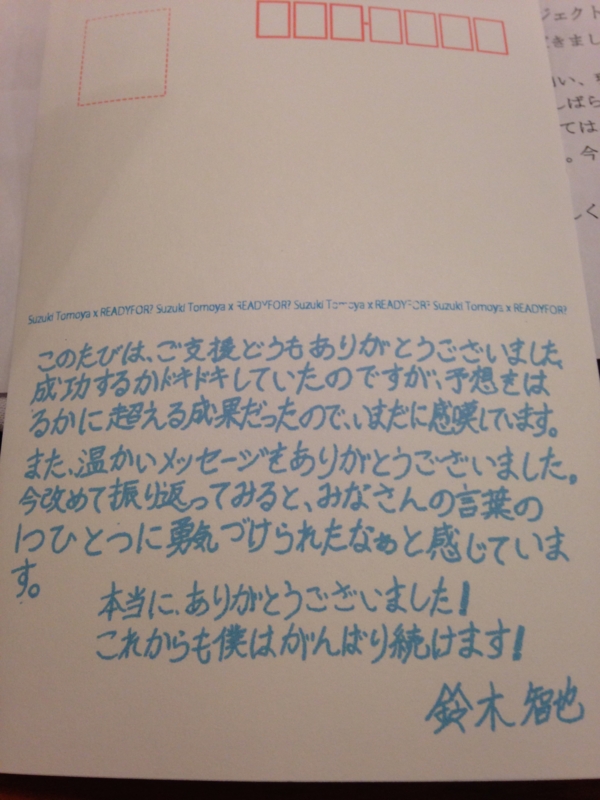 ジェクト
きまし
しばら
ては
。今
しく
Suzuki Tomoya x READYFOR? Suzuki Tomoya x READYFOR? Suzuki Tomoya x READYFOR? Suzuki Tomoya x READYFOR?
このたびは、ご支援どうもありがとうございました。
成功するかドキドキしていたのですが、予想をは
るかに超える成果だったので、いまだに感嘆しています。
また、温かいメッセージをありがとうございました。
今改めて振り返ってみると、みなさんの言葉の
1つひとつに勇気づけられたなぁと感じていま
す。
本当に、ありがとうございました!
これからも僕はがんばり続けます!
鈴木智也